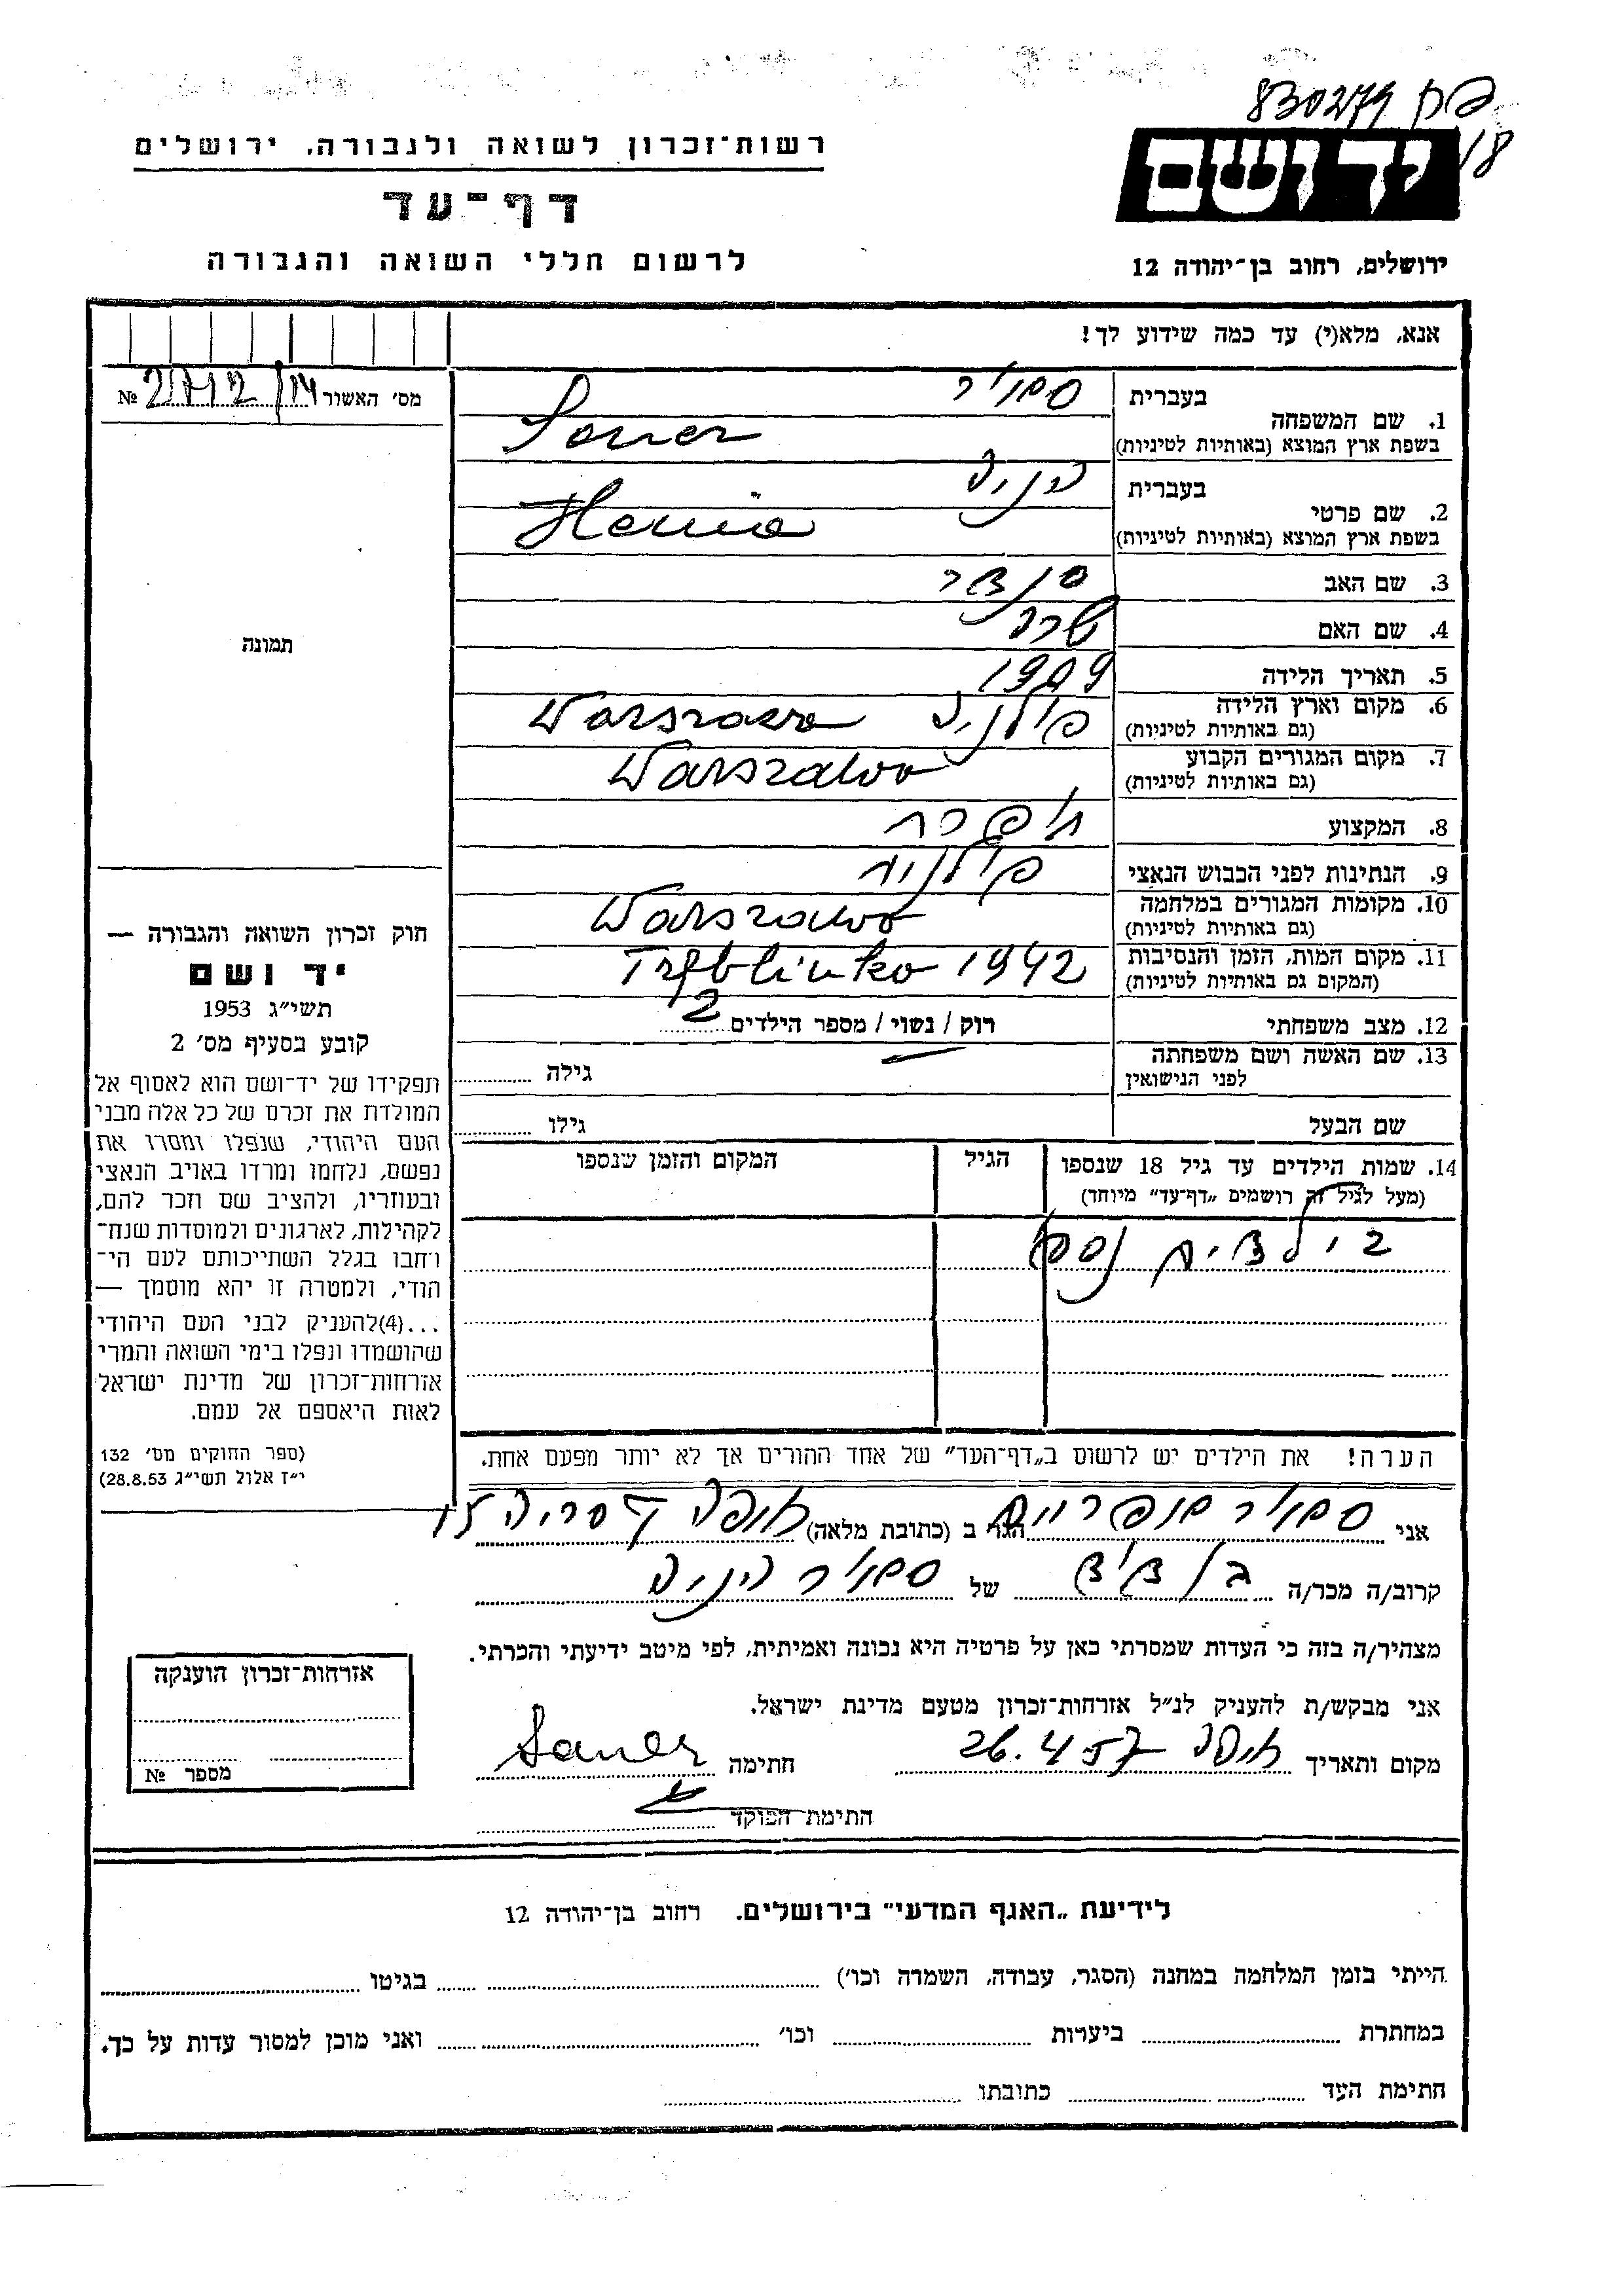 830279
רשות־זכרון לשואה ולגבורה. ירושלים
יד ושם
18
דף־עד
לרשום חללי השואה והגבורה
ירושלים, רחוב בן־יהודה 12
אנא, מלא(י) עד כמה שידוע לך!
מס׳ האשור № 2712/14
1. שם המשפחה
בעברית
בשפת ארץ המוצא (באותיות לטיניות)
2. שם פרטי
בעברית
הניה
בשפת ארץ המוצא (באותיות לטיניות) Henia
3. שם האב
4. שם האם שרה
5. תאריך הלידה 1909
6. מקום וארץ הלידה
(גם באותיות לטיניות)
פולניה Warszawa
7. מקום המגורים הקבוע
(גם באותיות לטיניות)
Warszawa
8. המקצוע תופרת
9. הנתינות לפני הכבוש הנאצי פולנית
10. מקומות המגורים במלחמה
(גם באותיות לטיניות)
Warszawa
11. מקום המות, הזמן והנסיבות
(המקום גם באותיות לטיניות)
Treblinka 1942
12. מצב משפחתי
רוק / נשוי / מספר הילדים 2
13. שם האשה ושם משפחתה
לפני הנישואין
גילה
שם הבעל
גילו
14. שמות הילדים עד גיל 18 שנספו
(מעל לגיל זה רושמים „דף־עד״ מיוחד)
הגיל
המקום והזמן שנספו
2 ילדים נספו
הערה! את הילדים יש לרשום ב„דף־העד״ של אחד ההורים אך לא יותר מפעם אחת.
תמונה
חוק זכרון השואה והגבורה —
יד ושם
תשי״ג 1953
קובע בסעיף מס׳ 2
תפקידו של יד־ושם הוא לאסוף אל
המולדת את זכרם של כל אלה מבני
העם היהודי, שנפלו ומסרו את
נפשם, נלחמו ומרדו באויב הנאצי
ובעוזריו, ולהציב שם וזכר להם,
לקהילות, לארגונים ולמוסדות שנח־
רחבו בגלל השתייכותם לעם הי־
הודי, ולמטרה זו יהא מוסמך —
...(4)להעניק לבני העם היהודי
שהושמדו ונפלו בימי השואה והמרי
אזרחות־זכרון של מדינת ישראל
לאות היאספם אל עמם.
(ספר החוקים מס׳ 132
י״ז אלול תשי״ג 28.8.53)
אני
הגר ב (כתובת מלאה) חיפה
קרוב/ה מכר/ה בן דוד של הניה
מצהיר/ה בזה כי העדות שמסרתי כאן על פרטיה היא נכונה ואמיתית, לפי מיטב ידיעתי והכרתי.
אני מבקש/ת להעניק לנ״ל אזרחות־זכרון מטעם מדינת ישראל.
מקום ותאריך חיפה 26.4.57 חתימה
חתימת הפוקד
אזרחות־זכרון הוענקה
מספר №
לידיעת „האגף המדעי״ בירושלים. רחוב בן־יהודה 12
הייתי בזמן המלחמה במחנה (הסגר, עבודה, השמדה וכו׳) בגיטו
במחתרת ביערות וכו׳ ואני מוכן למסור עדות על כך.
חתימת העד כתובתו